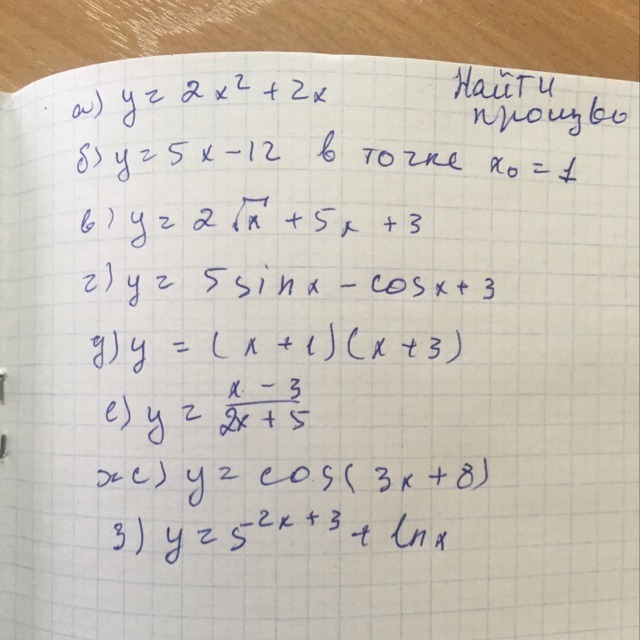 Найти
произво
а) y = 2x² + 2x
б) y = 5x - 12 в точке x₀ = 1
в) y = 2√x + 5x + 3
г) y = 5 sin x - cos x + 3
д) y = (x + 1)(x + 3)
е) y = \frac{x - 3}{2x + 5}
ж) y = cos(3x + 8)
з) y = 5^{-2x + 3} + ln x